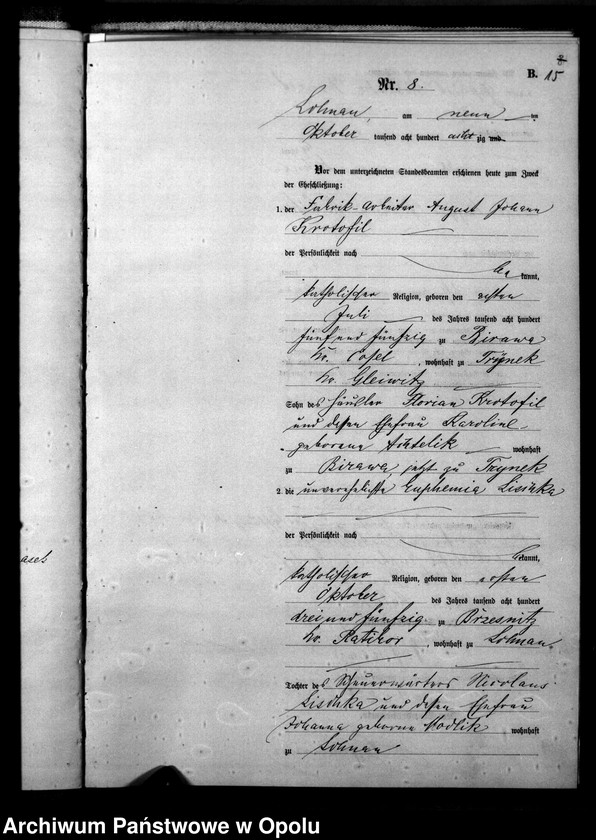 8
B. 15
Nr. 8.
am neun ten
Oktober tausend acht hundert acht zig und
Vor dem unterzeichneten Standesbeamten erschienen heute zum Zweck
der Eheschließung:
1. der Fabrik-Arbeiter August Johann
Krotofil
der Persönlichkeit nach
be kannt,
katholischer Religion, geboren den ersten
Juli des Jahres tausend acht hundert
fünf und fünfzig zu Birawa
Kr. Cosel, wohnhaft zu Trynek
Kr. Gleiwitz
Sohn des Häusler Florian Krotofil
und dessen Ehefrau Karoline
geborene wohnhaft
zu Birawa jetzt zu Trynek
2. die unverehelichte Euphemia Lischka
der Persönlichkeit nach
bekannt,
katholischer Religion, geboren den ersten
Oktober des Jahres tausend acht hundert
drei und fünfzig zu Brzesnitz
Kr. Ratibor, wohnhaft zu
Tochter des Nicolaus
Lischka und dessen Ehefrau
Johanna geborne wohnhaft
zu
Archiwum Państwowe w Opolu